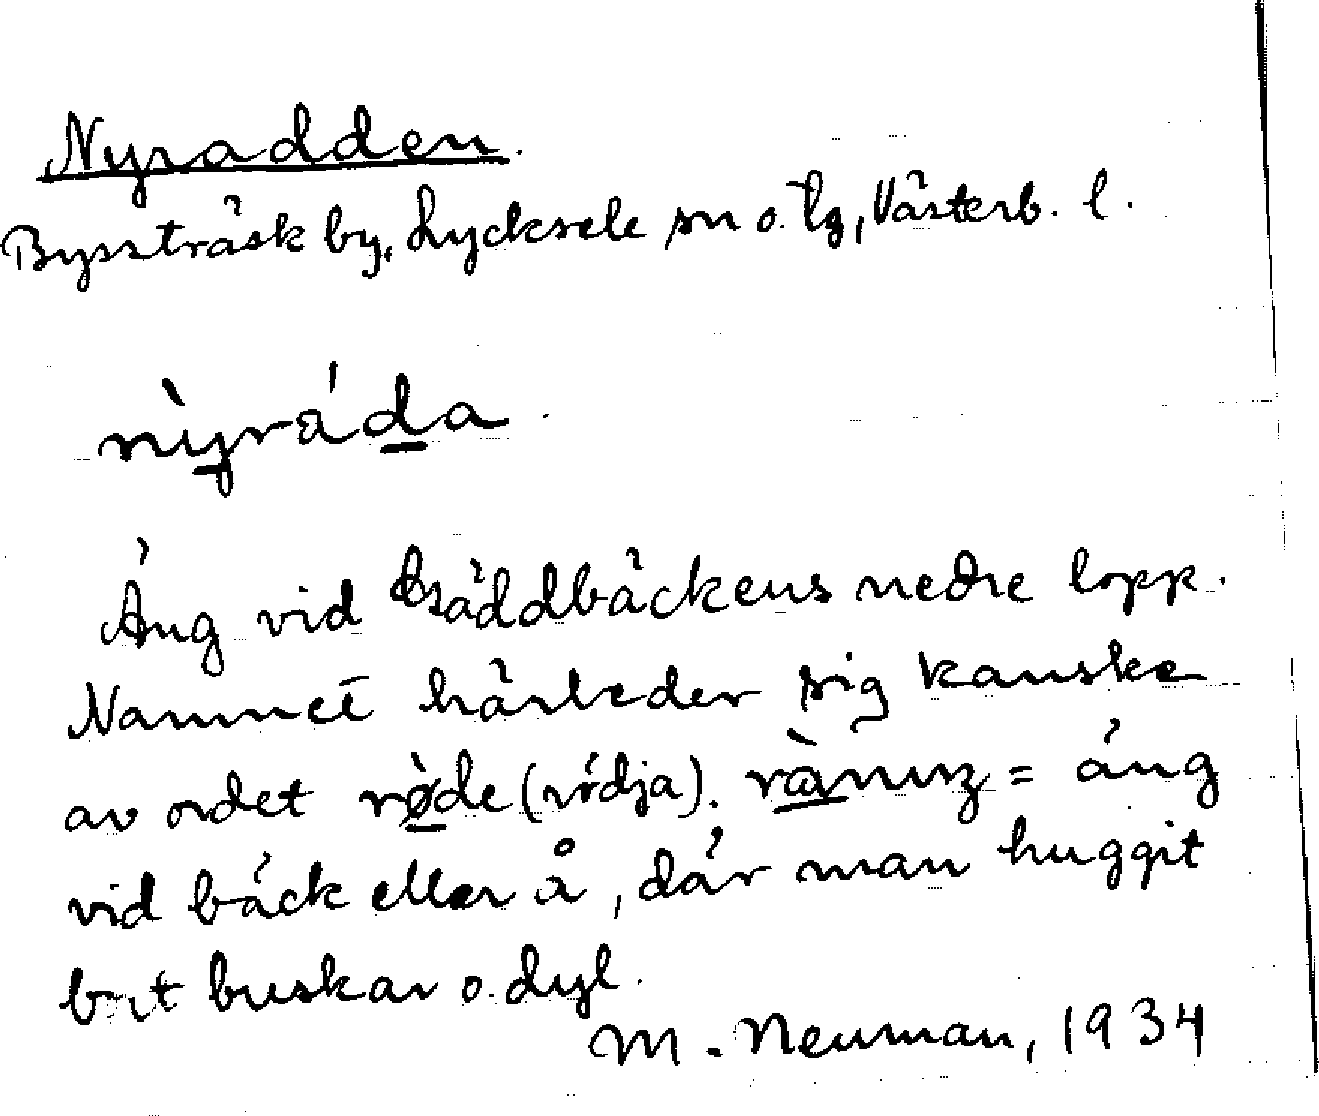 Nyradden.
Byssträsk by, Lycksele sn o. lg, Västerb. l.
nỳráda.
Äng vid Gäddbäckens nedre lopp.
Namnet härleder sig kanske
av ordet rø̀de (rödja). = äng
vid bäck eller å, där man huggit
bort buskar o. dyl.
M. Neuman, 1934